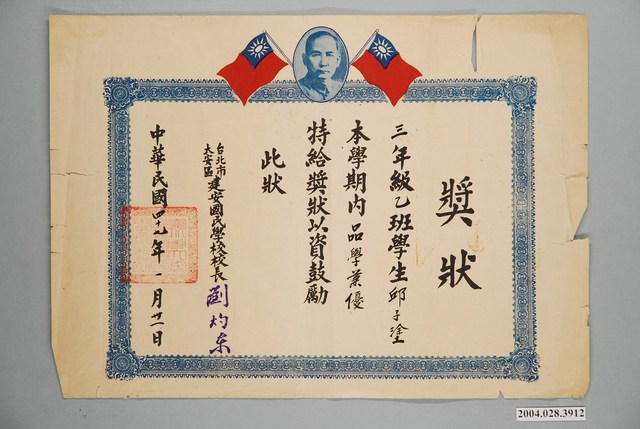 獎狀
三年級乙班學生邱子塗
本學期內品學業優
特給獎狀以資鼓勵
此狀
台北市
大安區
建安國民學校校長
劉灼
中華民國四十九年一月廿一日
2004.028.3912